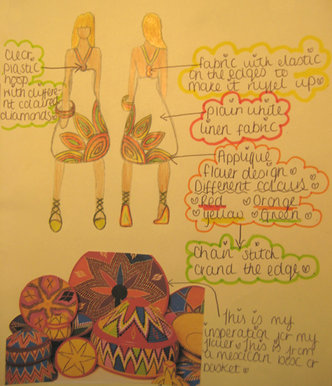 Clear
plastic
hoop
with differe-
nt coloured
diamonds
fabric with elastic
on the edges to
make it ruffel up
plain white
linen fabric
Appliqué
flower design
Different colours
Red Orange
Yellow Green
Chain stitch
around the edge
This is my
insperation for my
flower. This is from
a mexican box or
basket